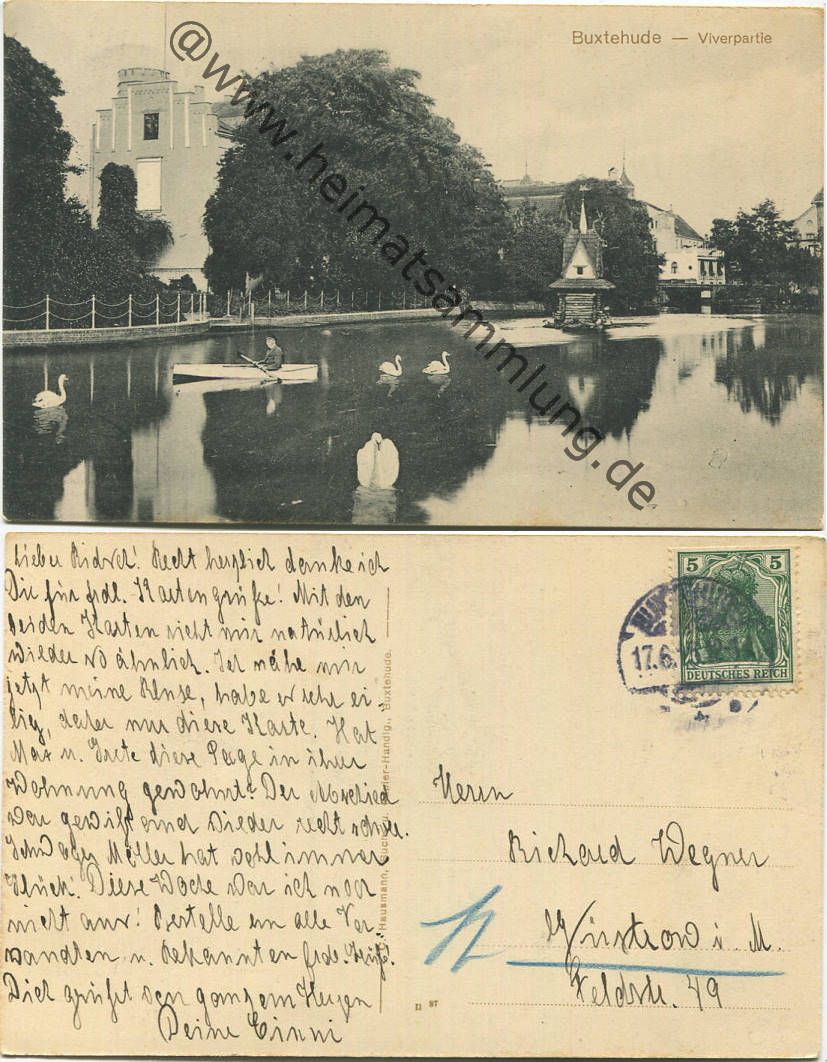 Buxtehude — Viverpartie
@www.heimatsammlung.de
Lieber Richard! Recht herzlich danke ich
Dir für frdl. Kartengrüße! Mit den
beiden Karten sieht mir natürlich
wieder so ähnlich. Ich nähe mir
jetzt meine Bluse, habe es sehr ei-
lig, daher nur diese Karte. Hat
Max u. Grete diese Tage in ihrer
Wohnung gewohnt? Der Abschied
war gewiß auch wieder recht schwer.
Schwager Möller hat wohl immer
Glück. Diese Woche war ich noch
nicht aus! Bestelle an alle Ver-
wandten u. Bekannten frdl. Grüße.
Dich grüßt von ganzem Herzen
Deine Cinni
Hausmann, Buchbdr. Papier-Handlg., Buxtehude.
5 5
DEUTSCHES REICH
17.6.
Herrn
Richard Wegner
Güstrow i. M.
Feldstr. 49
D 87